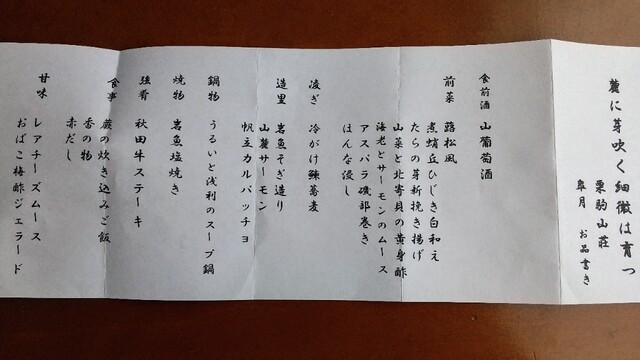 麓に芽吹く細薇は育つ
栗駒山荘
皐月 お品書き
食前酒 山葡萄酒
前菜 蕗松風
煮蛸丘ひじき白和え
たらの芽新挽き揚げ
山菜と北寄貝の黄身酢
海老とサーモンのムース
アスパラ磯部巻き
ほんな浸し
凌ぎ 冷がけ鰊蕎麦
造里 岩魚そぎ造り
山麓サーモン
帆立カルパッチョ
鍋物 うるいと浅利のスープ鍋
焼物 岩魚塩焼き
強肴 秋田牛ステーキ
食事 蕨の炊き込みご飯
香の物
赤だし
甘味 レアチーズムース
おばこ梅酢ジェラード